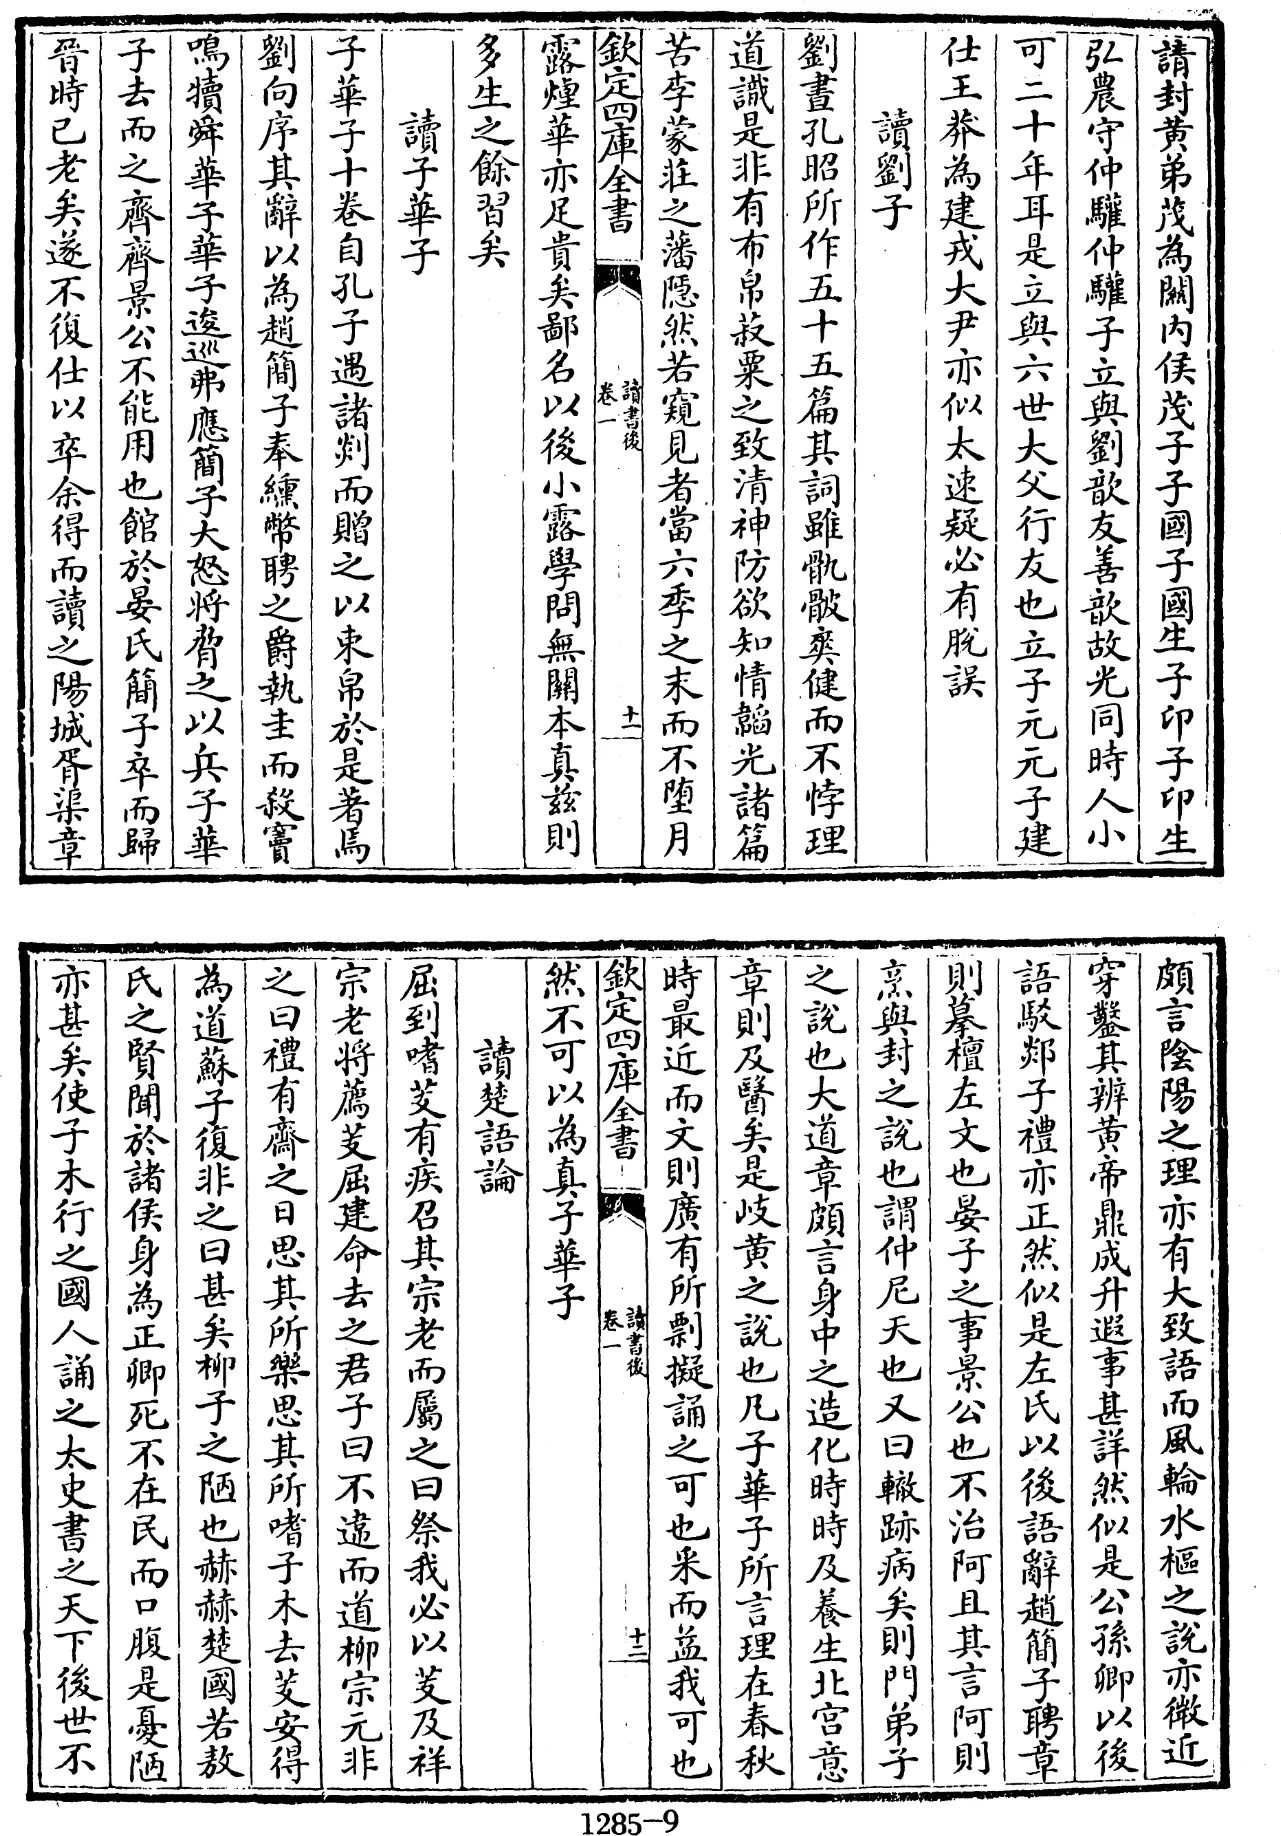 請封黄弟茂為關内侯茂子子國子國生子卬子卬生
弘農守仲驩仲驩子立與劉歆友善歆故光同時人小
可二十年耳是立與六世大父行友也立子元元子建
仕王莽為建戎大尹亦似太速疑必有脱誤
讀劉子
劉晝孔昭所作五十五篇其詞雖骩骳爽健而不悖理
道識是非有布帛菽粟之致清神防欲知情韜光諸篇
苦李蒙莊之藩隱然若窺見者當六季之末而不墮月
欽定四庫全書
讀書後
卷一
十一
露煙華亦足貴矣鄙名以後小露學問無關本真兹則
多生之餘習矣
讀子華子
子華子十卷自孔子遇諸剡而贈之以束帛於是著焉
劉向序其辭以為趙簡子奉纁幣聘之爵執圭而殺竇
鳴犢舜華子華子逡巡弗應簡子大怒将脅之以兵子華
子去而之齊齊景公不能用也館於晏氏簡子卒而歸
晉時已老矣遂不復仕以卒余得而讀之陽城胥渠章
頗言陰陽之理亦有大致語而風輪水樞之説亦微近
穿鑿其辨黄帝鼎成升遐事甚詳然似是公孫卿以後
語駁郯子禮亦正然似是左氏以後語辭趙簡子聘章
則摹檀左文也晏子之事景公也不治阿且其言阿則
烹與封之説也謂仲尼天也又曰轍跡病矣則門弟子
之説也大道章頗言身中之造化時時及養生北宫意
章則及醫矣是岐黄之説也凡子華子所言理在春秋
時最近而文則廣有所剽擬誦之可也采而益我可也
欽定四庫全書
讀書後
卷一
十二
然不可以為真子華子
讀楚語論
屈到嗜芰有疾召其宗老而屬之曰祭我必以芰及祥
宗老将薦芰屈建命去之君子曰不違而道柳宗元非
之曰禮有齊之日思其所樂思其所嗜子木去芰安得
為道蘇子復非之曰甚矣柳子之陋也赫赫楚國若敖
氏之賢聞於諸侯身為正卿死不在民而口腹是憂陋
亦甚矣使子木行之國人誦之太史書之天下後世不
1285-9